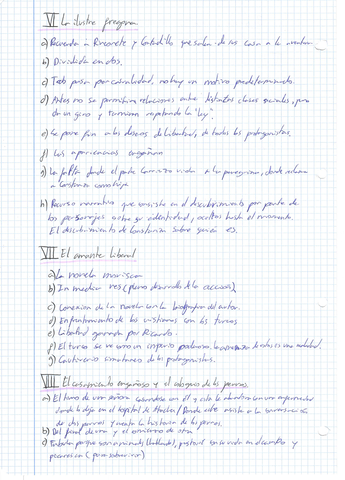 VI La ilustre fregona
a) Recuerda a Rinconete y Cortadillo que salen de sus casa a la aventura
b) Dividida en dos.
c) Todo pasa por casualidad, no hay un motivo predeterminado.
d) Antes no se permitían relaciones entre distintas clases sociales, pero
da un giro y terminan respetando la "ley".
e) Se pone fin a los deseos de libertad, de todos los protagonistas.
f) Las apariencias engañan
g) La donde el padre a la peregrina, donde
a Costanza como hija
h) Recurso narrativo que consiste en el descubrimiento por parte de
los personajes sobre su identidad, ocultos hasta el momento.
El descubrimiento de Constanza sobre quién es.
VII El amante liberal
a) La novela morisca
b) In media res (pleno desarrollo de la acción)
c) Conexión de la novela con la biografía del autor.
d) Enfrentamiento de los cristianos con los turcos
e) Libertad ganada por Ricardo.
f) El turco se ve como un imperio poderoso, la de estos es una realidad.
g) Cautiverio simultáneo de los protagonistas.
VIII El casamiento engañoso y el coloquio de los perros.
a) El de una señora casándose con él y esta le abandona
donde lo deja en el hospital de Donde este asiste a la conversación
de dos perros y cuenta la historia de los perros.
b) Del final de una y el comienzo de otra
c) También porque son animales (hablando), en el campo y
(para sobrevivir)